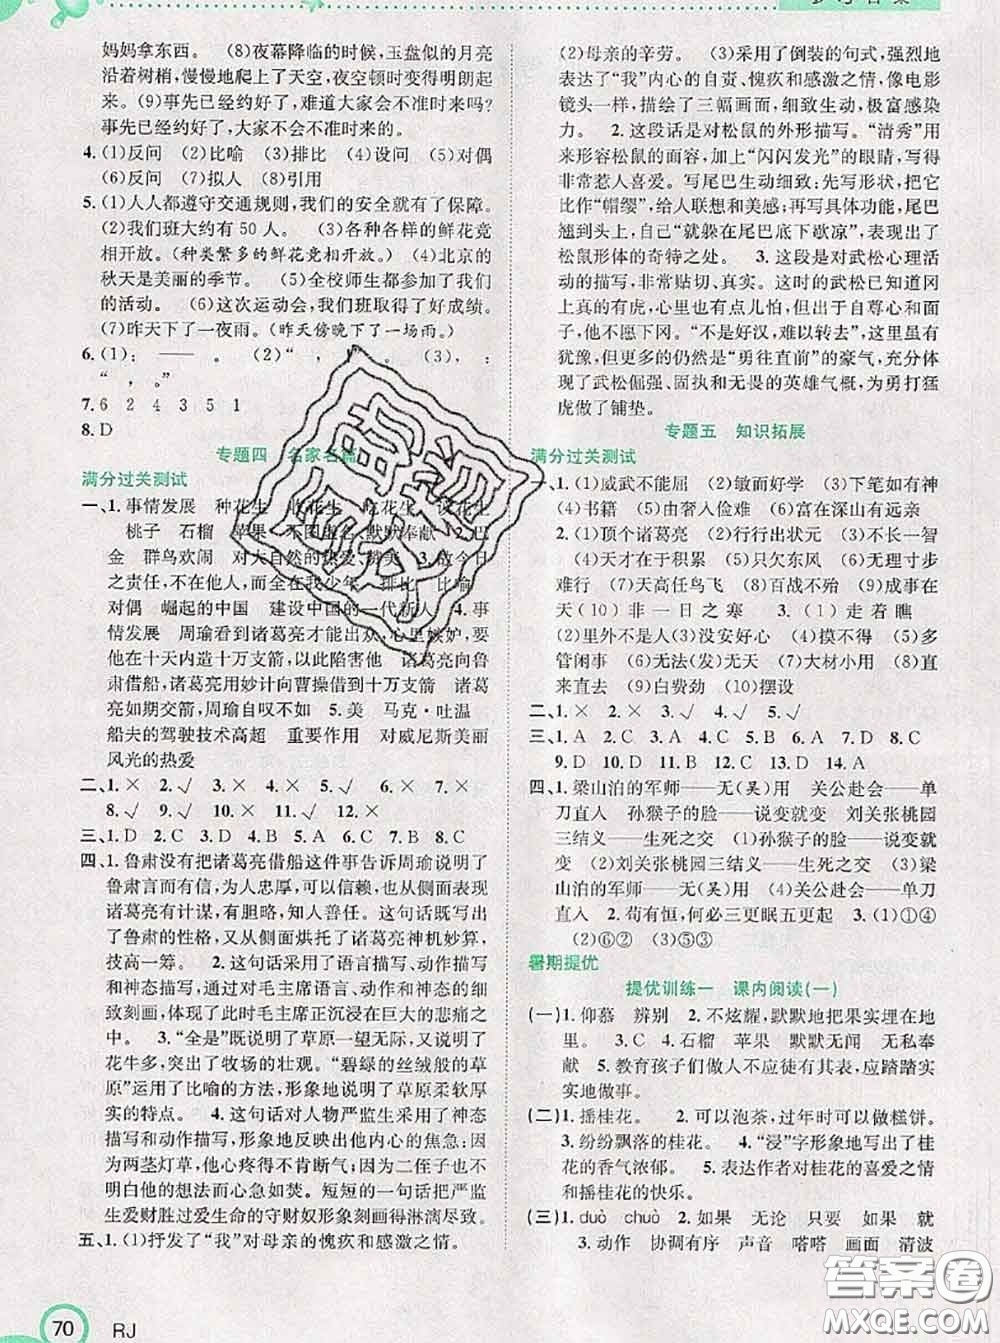 参考答案
妈妈拿东西。　(8)夜幕降临的时候,玉盘似的月亮
沿着树梢,慢慢地爬上了天空,夜空顿时变得明朗起
来。(9)事先已经约好了,难道大家会不准时来吗?
事先已经约好了,大家不会不准时来的。
4.(1)反问　(2)比喻　(3)排比　(4)设问　(5)对偶
(6)反问　(7)拟人　(8)引用
5.(1)人人都遵守交通规则,我们的安全就有了保障。
(2)我们班大约有 50 人。　(3)各种各样的鲜花竞
相开放。(种类繁多的鲜花竞相开放。)　(4)北京的
秋天是美丽的季节。　(5)全校师生都参加了我们
的活动。　(6)这次运动会,我们班取得了好成绩。
(7)昨天下了一夜雨。(昨天傍晚下了一场雨。)
6.(1)：　——　。　(2)“　,　　。　(3),　：
“　,　。”
7.6　2　4　3　5　1
8.D
专题四　名家名篇
满分过关测试
一、1.事情发展　种花生　收花生　吃花生　议花生
桃子　石榴　苹果　不图虚名　默默奉献　2.巴
金　群鸟欢闹　对大自然的热爱、赞美　3.故今日
之责任,不在他人,而全在我少年　排比　比喻
对偶　崛起的中国　建设中国的一代新人　4.事
情发展　周瑜看到诸葛亮才能出众,心里嫉妒,要
他在十天内造十万支箭,以此陷害他　诸葛亮向鲁
肃借船,诸葛亮用妙计向曹操借到十万支箭　诸葛
亮如期交箭,周瑜自叹不如　5.美　马克·吐温
船夫的驾驶技术高超　重要作用　对威尼斯美丽
风光的热爱
二、1.×　2.√　3.×　4.√　5.×　6.×　7.×
8.√　9.√　10.×　11.√　12.×
三、1.D　2.C　3.D　4.B　5.A　6.D　7.B　8.C
四、1.鲁肃没有把诸葛亮借船这件事告诉周瑜说明了
鲁肃言而有信,为人忠厚,可以信赖,也从侧面表现
诸葛亮有计谋,有胆略,知人善任。这句话既写出
了鲁肃的性格,又从侧面烘托了诸葛亮神机妙算,
技高一筹。　2.这句话采用了语言描写、动作描写
和神态描写,通过对毛主席语言、动作和神态的细
致刻画,体现了此时毛主席正沉浸在巨大的悲痛之
中。　3.“全是”既说明了草原一望无际,又说明了
花牛多,突出了牧场的壮观。“碧绿的丝绒般的草
原”运用了比喻的方法,形象地写出了草原柔软厚
实的特点。　4.这句话对人物严监生采用了神态
和动作描写,形象地反映出他内心的焦急;因为有
两茎灯草,他心疼得不肯断气;因为二侄子也不能
明白他的想法而心急如焚。短短的一句话把严监
生爱财胜过爱生命的守财奴形象刻画得淋漓尽致。
五、1.(1)抒发了“我”对母亲的愧疚和感激之情。
(2)母亲的辛劳。　(3)采用了倒装的句式,强烈地
表达了“我”内心的自责、愧疚和感激之情,像电影
镜头一样,描绘了三幅画面,细致生动,极富感染
力。　2.这段话是对松鼠的外形描写。“清秀”用
来形容松鼠的面容,加上“闪闪发光”的眼睛,写得
非常惹人喜爱。写尾巴生动细致:先写形状,把它
比作“帽缨”,给人联想和美感;再写具体功能,尾巴
翘到头上,自己“就躲在尾巴底下歇凉”,突出了
松鼠形体的奇特之处。　3.这段是对武松心理活
动的描写,非常贴切、真实。这时的武松已知道冈
上真的有虎,心里也有点儿怕,但出于自尊心和面
子,他不愿下冈。“不是好汉,难以转去”,虽然有
犹豫,但更多的仍然是“勇往直前”的豪气,充分体
现了武松倔强、固执和无畏的英雄气概,为勇打猛
虎做了铺垫。
专题五　知识拓展
满分过关测试
一、1.(1)威武不能屈　(2)敏而好学　(3)下笔如有神
(4)书籍　(5)由奢入俭难　(6)富在深山有远亲
2.(1)顶个诸葛亮　(2)行行出状元　(3)功夫深
(4)天才在于积累　(5)只欠东风　(6)无理寸步
难行　(7)天高任鸟飞　(8)百战不殆　(9)成事在
天　(10)非一日之寒　3.(1)走着瞧
(2)里外不是人　(3)没安好心　(4)两头空　(5)多
管闲事　(6)无法(发)无天　(7)大材小用　(8)直
来直去　(9)白费劲　(10)摆设
二、1.×　2.×　3.√　4.√　5.√
三、1.C　2.C　3.A　4.C　5.B　6.A　7.D　8.C
9.D　10.A　11.A　12.C　13.D　14.D
四、1.梁山泊的军师——无(吴)用　关公赴会——单
刀直入　孙猴子的脸——说变就变　刘关张桃园
三结义——生死之交　(1)孙猴子的脸——说变就
变　(2)刘关张桃园三结义——生死之交　(3)梁
山泊的军师——无(吴)用　(4)关公赴会——单刀
直入　2.苟有恒,何必三更眠五更起　3.(1)①④
(2)⑥②　(3)⑤③
暑期提优
提优训练一　课内阅读(一)
(一)1.仰慕　辨别　2.不炫耀,默默地把果实埋在地
里。　3.C　4.石榴　苹果　默默无闻　无私奉
献　5.教育孩子们做人不应徒有其表,应踏踏实
实地做事。
(二)1.摇桂花。　2.可以泡茶,过年时可以做糕饼。
3.纷纷飘落的桂花。　4.“浸”字形象地写出了桂
花的香气浓郁。　5.表达作者对桂花的喜爱之情
和摇桂花的快乐。
(三)1.duò　chuò　2.如果　无论　只要　如果　就
3.动作　协调有序　声音　嗒嗒　画面　清波
70
RJ
答案圈
MXQE.COM